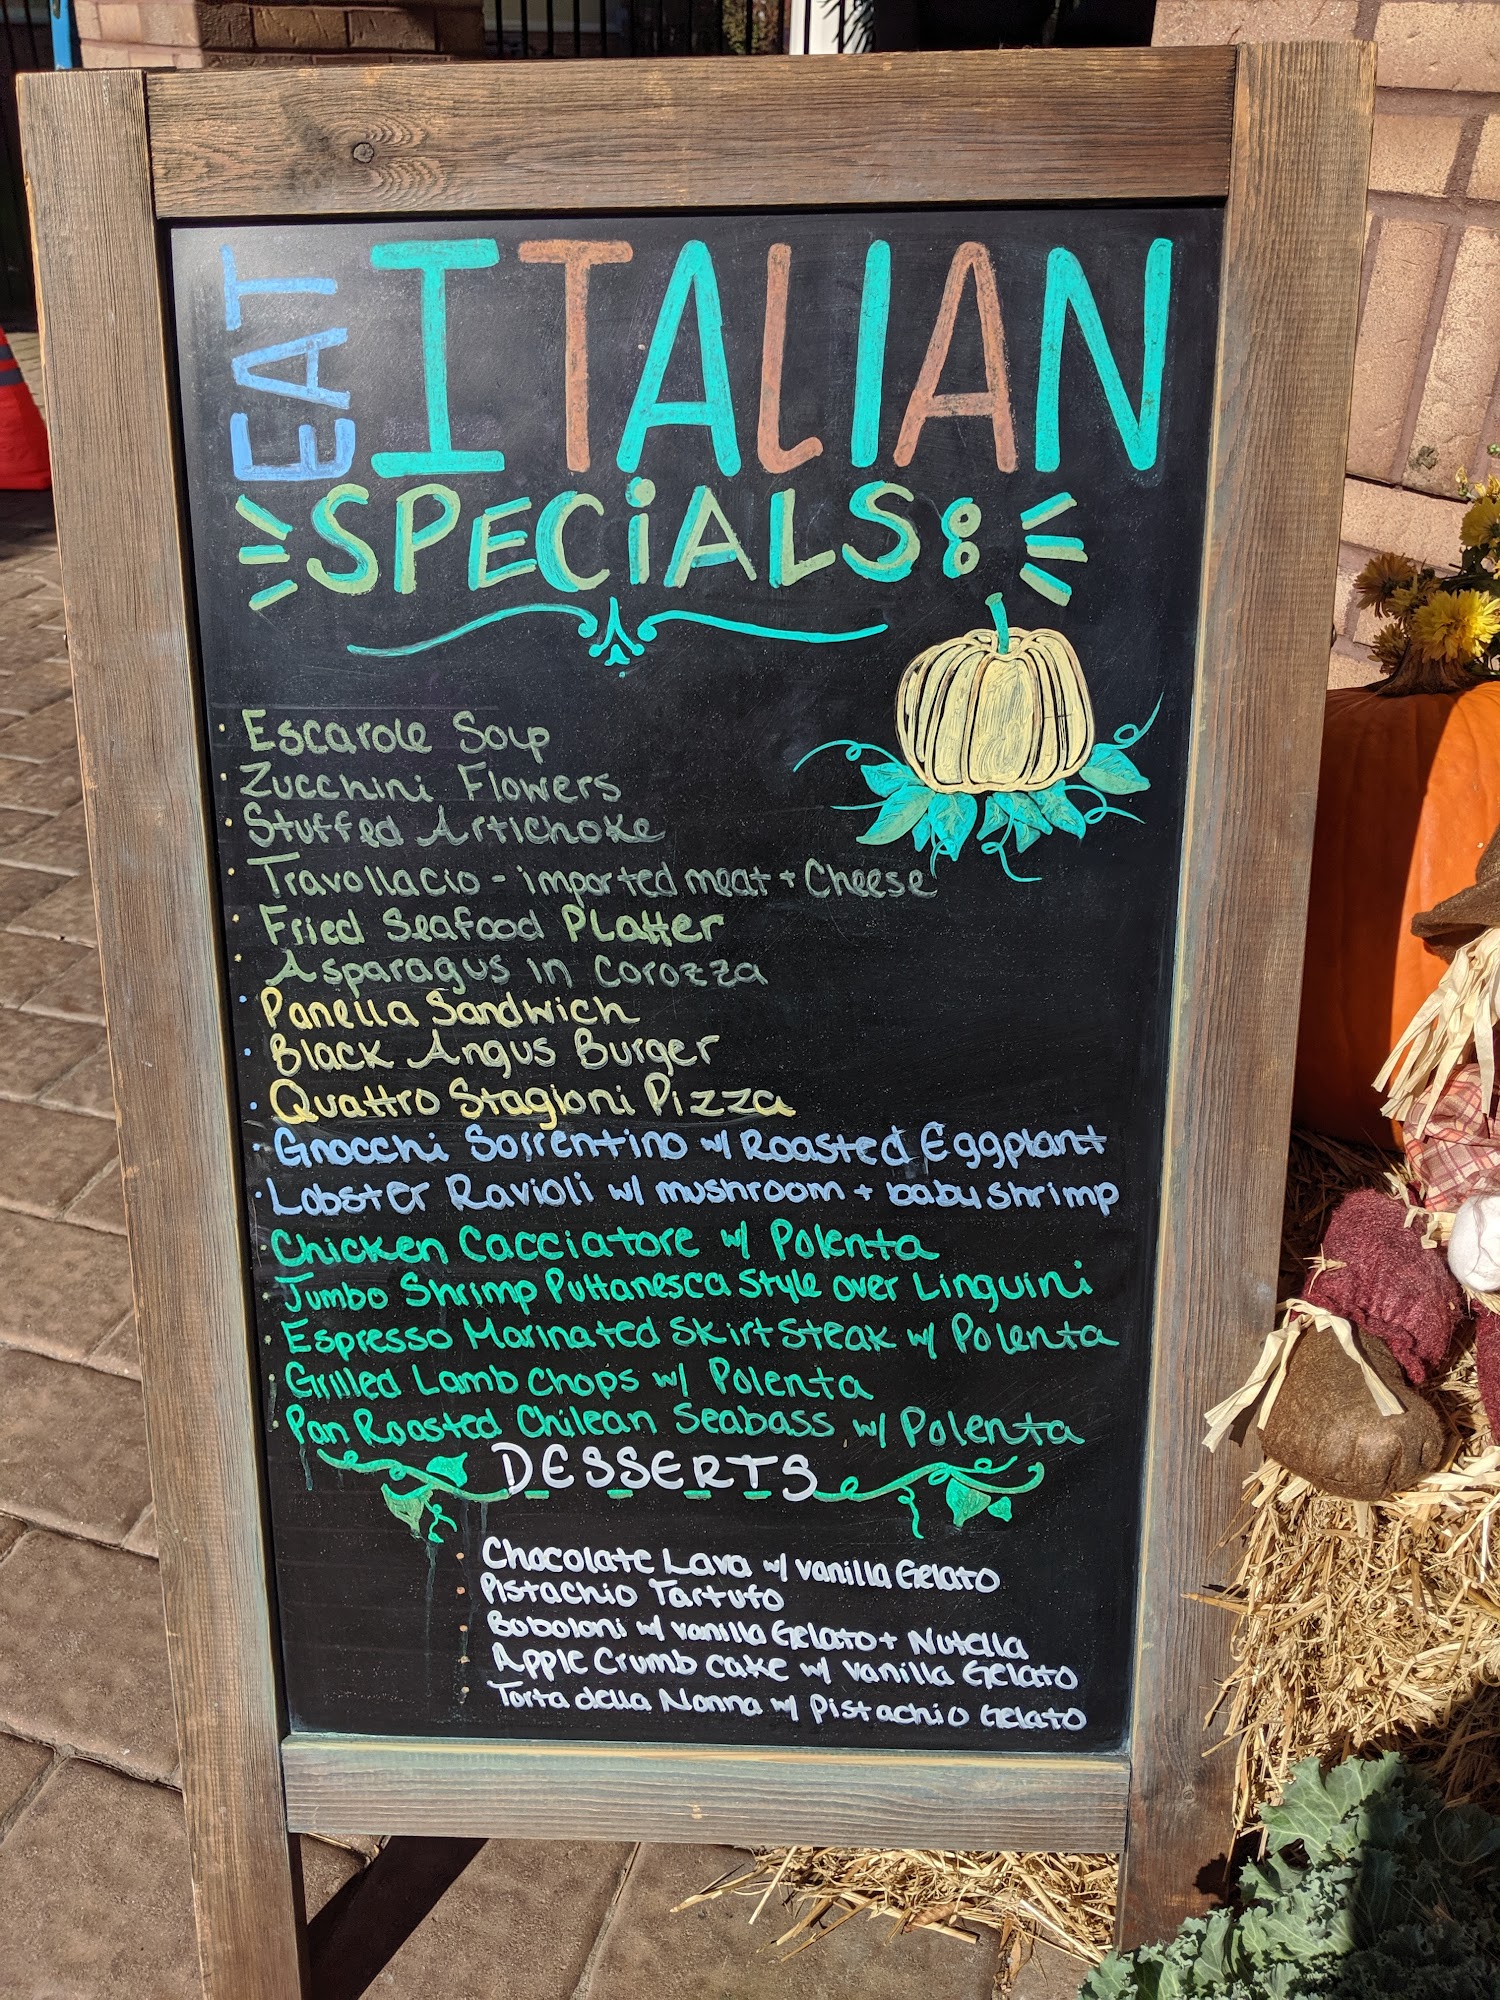 EAT ITALIAN
SPECiALS:
Escarole Soup
Zucchini Flowers
Stuffed Artichoke
Travollacio - imported meat + Cheese
Fried Seafood Platter
Asparagus in Corozza
Panella Sandwich
Black Angus Burger
Quattro Stagioni Pizza
Gnocchi Sorrentino w/ Roasted Eggplant
Lobster Ravioli w/ mushroom + baby shrimp
Chicken Cacciatore w/ Polenta
Jumbo Shrimp Puttanesca Style over Linguini
Espresso Marinated Skirt Steak w/ Polenta
Grilled Lamb Chops w/ Polenta
Pan Roasted Chilean Seabass w/ Polenta
DESSERTS
Chocolate Lava w/ vanilla Gelato
Pistachio Tartufo
Boboloni w/ vanilla Gelato + Nutella
Apple Crumb cake w/ vanilla Gelato
Torta della Nonna w/ Pistachio Gelato